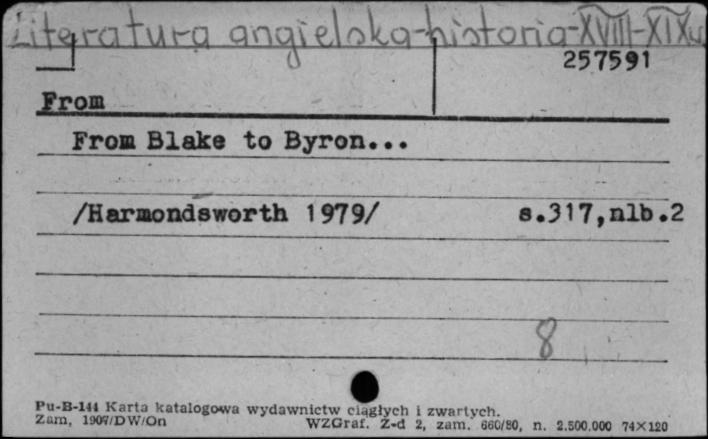 Literatura angielska-historia-XVIII-XIXw
257591
From
From Blake to Byron...
/Harmondsworth 1979/ s.317,nlb.2
8
Pu-B-144 Karta katalogowa wydawnictw ciągłych i zwartych.
Zam, 1907/DW/On WZGraf. Z-d 2, zam. 660/80, n. 2.500.000 74×120